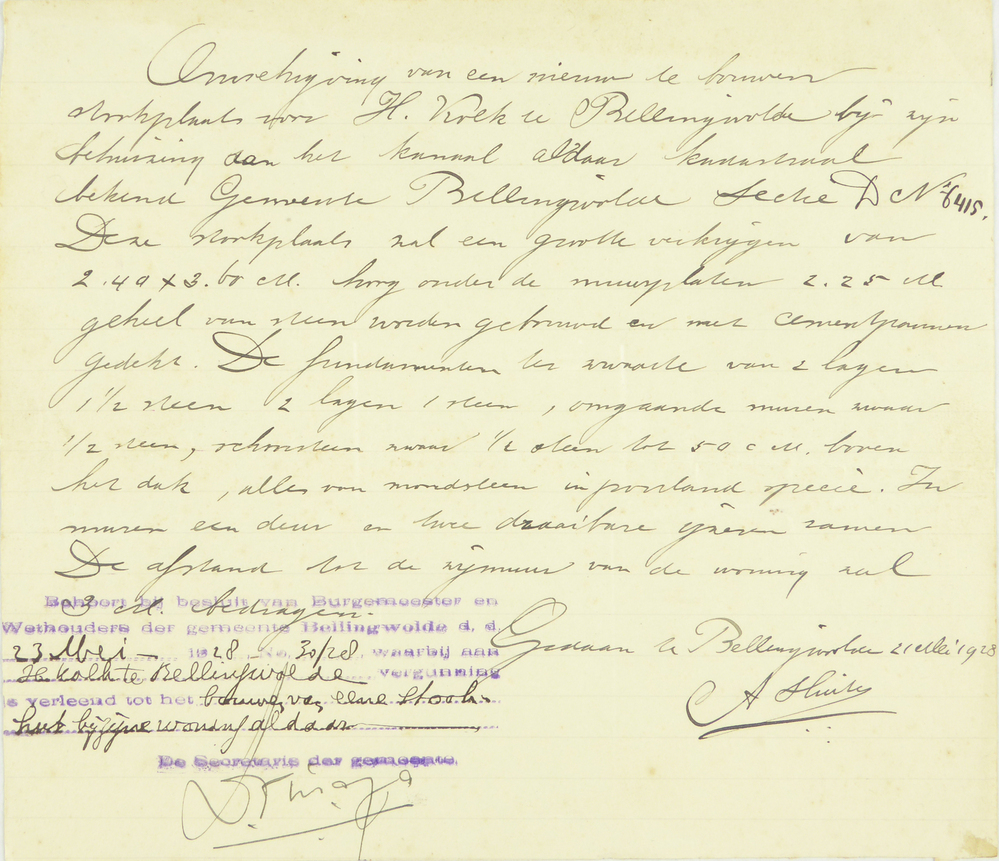 Omschrijving van een nieuw te bouwen
stookplaats voor H. Kolk te Bellingwolde bij zijn
behuizing aan het kanaal aldaar kadastraal
bekend Gemeente Bellingwolde Sectie D No 6415.
Deze stookplaats zal een grootte verkrijgen van
2.40 x 3.60 M. hoog onder de muurplaten 2.25 M
geheel van steen worden gebouwd en met cementpannen
gedekt. De fundamenten ter zwaarte van 2 lagen
1 1/2 steen 2 lagen 1 steen, omgaande muren zwaar
1/2 steen, schoorsteen zwaar 1/2 steen tot 50 c M. boven
het dak, alles van mondsteen in portland specie. In
muren een deur en twee draaibare ijzeren ramen
De afstand tot de zijmuur van de woning zal
3 M. bedragen.
Gedaan te Bellingwolde 21 Mei 1928
Behoort bij besluit van Burgemeester en
Wethouders der gemeente Bellingwolde d.d.
23 Mei 1928 No. 30/28, waarbij aan
H Kolk te Bellingwolde vergunning
is verleend tot het bouwen van eene stook-
hut bij zijne woning aldaar
De Secretaris der gemeente,